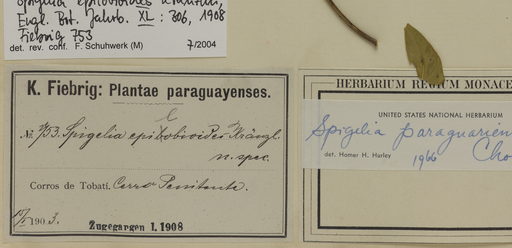 Spigelia epilobioides Kränzlin,
Engl. Bot. Jahrb. XL : 306, 1908
Fiebrig 753
det. rev. conf. F. Schuhwerk (M) 7/2004
K. Fiebrig: Plantae paraguayenses.
№ 753. Spigelia epilobioides Kränzl.
n. spec.
Corros de Tobatí. Cerro Penitente.
190 3.
Zugegangen 1. 1908
HERBARIUM REGIUM MONACE
UNITED STATES NATIONAL HERBARIUM
Spigelia paraguarien
Cho
det. Homer H. Hurley 1966